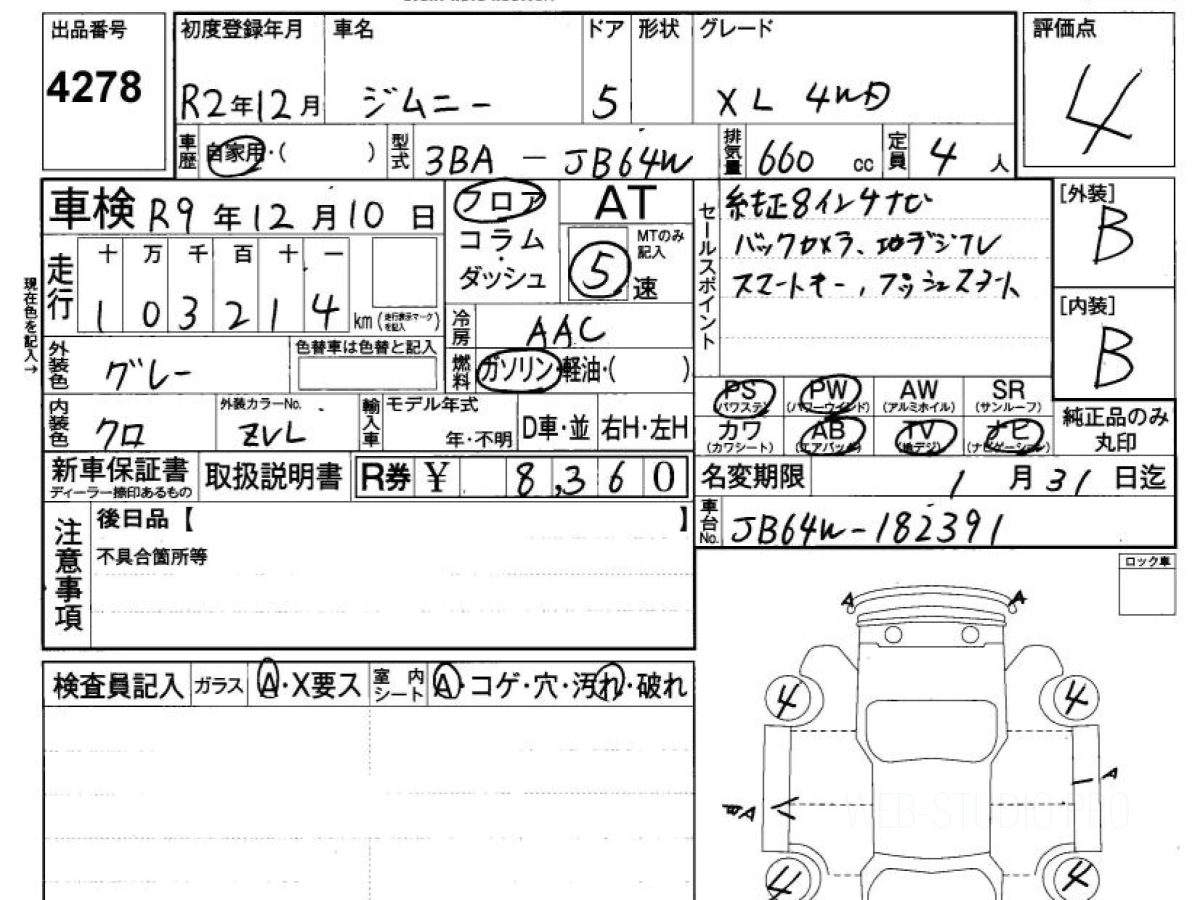 出品番号
4278
初度登録年月
R2年12月
車名
ジムニー
ドア
5
形状
グレード
XL 4WD
評価点
4
車歴
自家用・( )
型式
3BA - JB64W
排気量
660 cc
定員
4 人
車検 R9年12月10日
フロア
コラム・ダッシュ
AT
5速
MTのみ記入
セールスポイント
純正8インチナビ
バックカメラ、地デジTV
スマートキー、プッシュスタート
[外装]
B
[内装]
B
現在色を記入→
走行
十 万 千 百 十 一
1 0 3 2 1 4 km
(走行表示マークを記入)
冷房
AAC
外装色
グレー
色替車は色替と記入
燃料
ガソリン・軽油・( )
PS
(パワステ)
PW
(パワーウインド)
AW
(アルミホイル)
SR
(サンルーフ)
純正品のみ
丸印
内装色
クロ
外装カラーNo.
ZVL
輸入車
モデル年式
年・不明
D車・並
右H・左H
カワ
(カワシート)
AB
(エアバッグ)
TV
(地デジ)
ナビ
(ナビゲーション)
新車保証書
ディーラー捺印あるもの
取扱説明書
R券 ¥ 8,360
名変期限 1月31日迄
注意事項
後日品【 】
不具合箇所等
車台No.
JB64W-182391
ロック車
A A
検査員記入
ガラス
A・X要ス
室内シート
A・コゲ・穴・汚れ・破れ
4 4
A
A
WEB-STUDIO.PRO
4 4